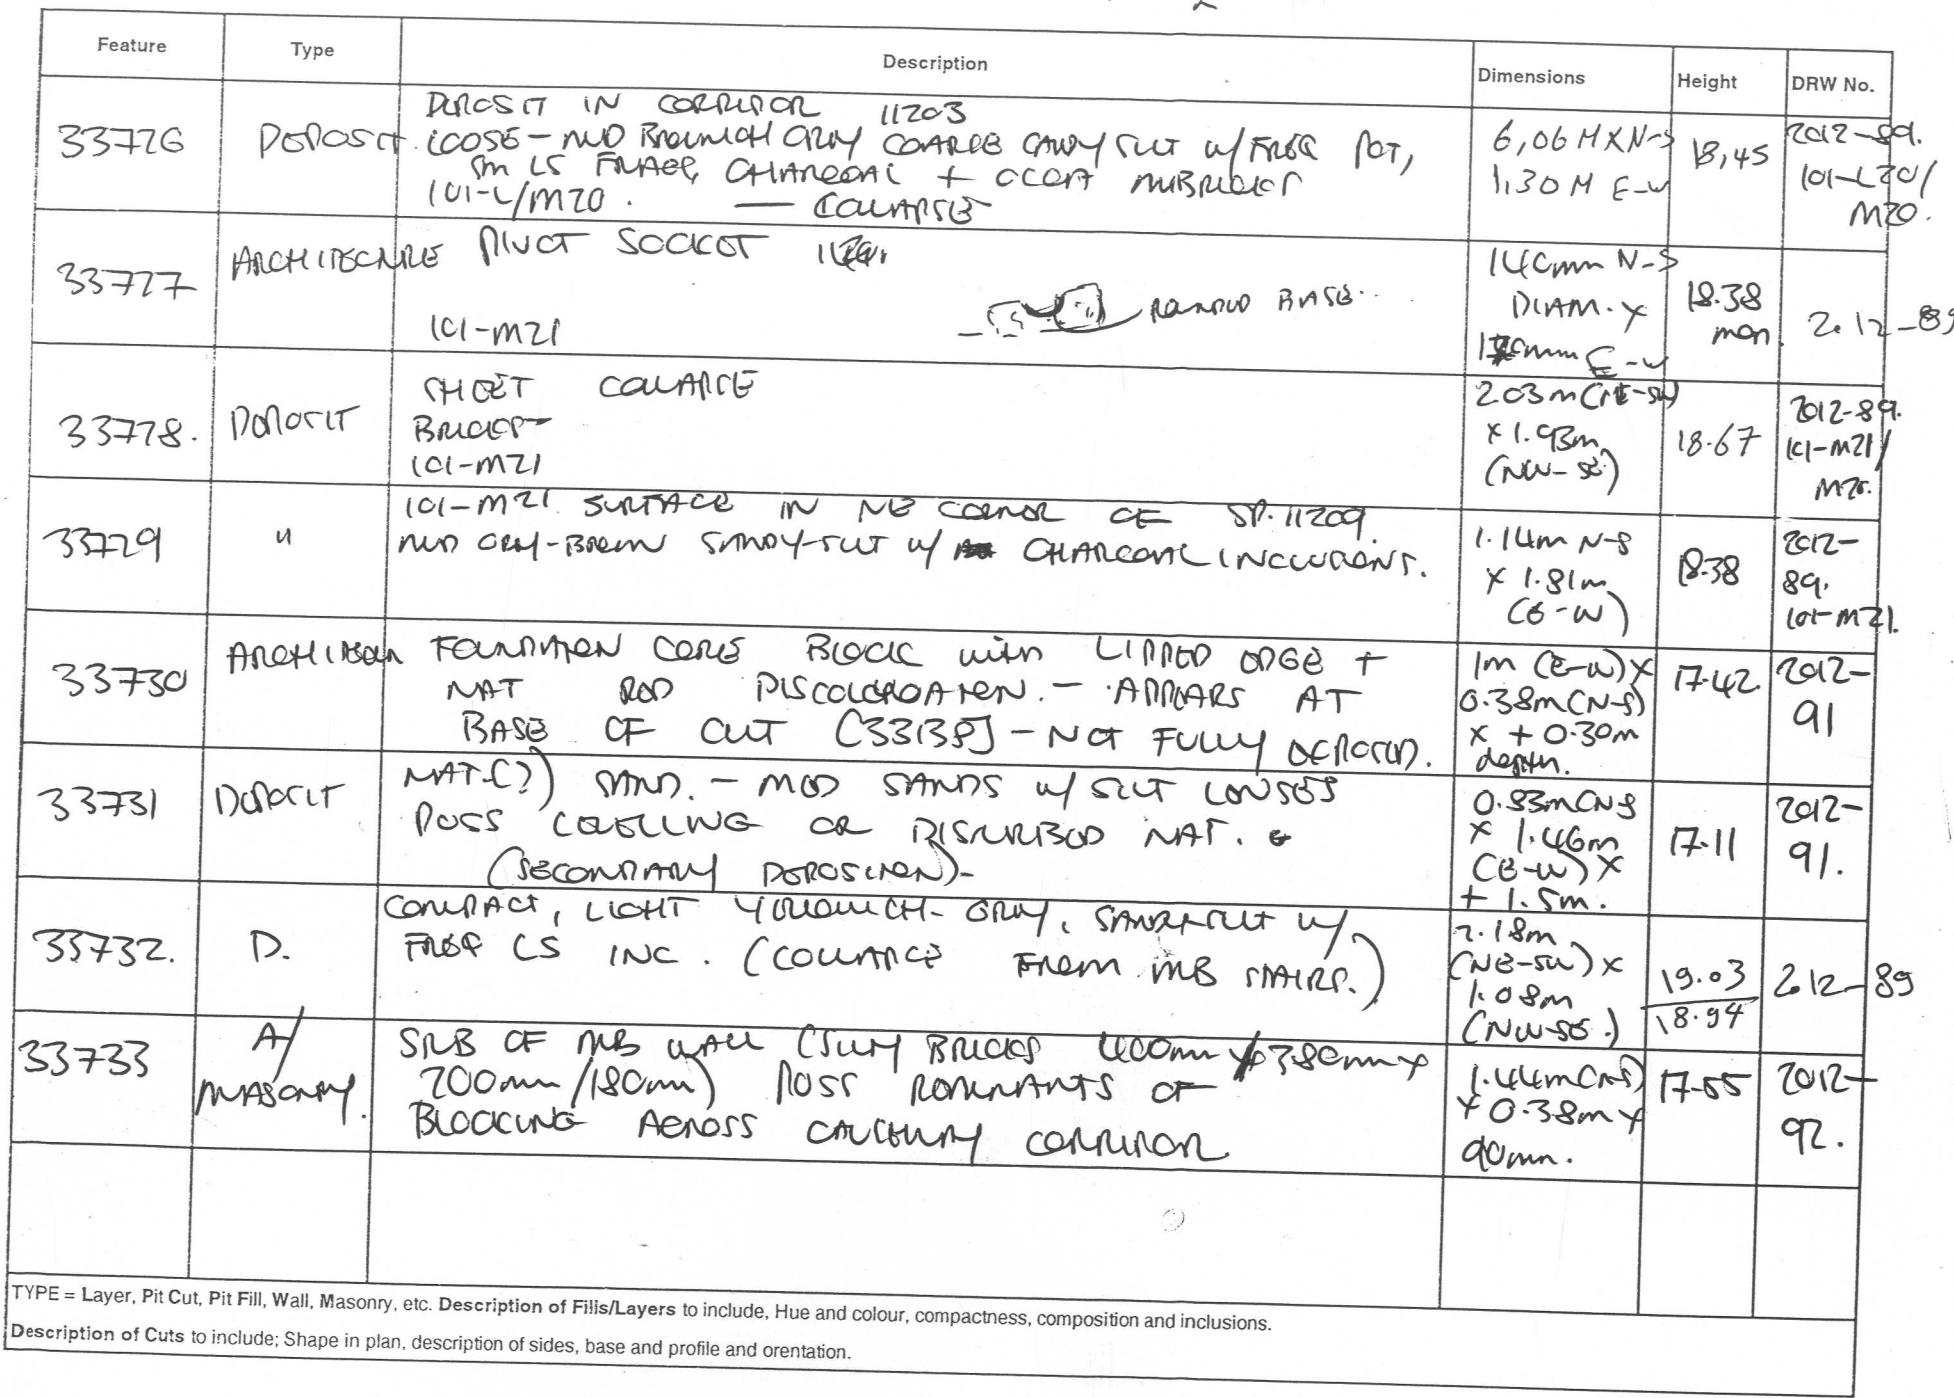 Feature Type Description Dimensions Height DRW No.
33726 DEPOSIT.
DEPOSIT IN CORRIDOR 11203
LOOSE - MID BROWNISH GREY COARSE SANDY SILT w/ FREQ POT,
SM LS FRAGS, CHARCOAL + OCCA MUBRICKS
101-L/M20. — COLLAPSE
6,06 M X N-S
1.30 M E-W
18,45
2012-89.
101-L20/
M20.
33727 ARCHITECTURE
PIVOT SOCKET
101-M21
ROUNDED BASE..
140mm N-S
DIAM. x
E-W
18.38
2012-89
33728. DEPOSIT
SHEET COLLAPSE
BRICKS-
101-M21
2.03m (NE-SW)
x 1.93m
(NW-SE)
18.67
2012-89.
101-M21/
M20.
33729 "
101-M21 SURFACE IN NE CORNER OF SP.11209.
MID GREY-BROWN SANDY-SILT w/ CHARCOAL INCLUSIONS.
1.14m N-S
x 1.81m
(E-W)
18.38
2012-
89.
101-M21.
33730
FOUNDATION CORE BLOCK with LIPPED EDGE +
NAT RED DISCOLOROATION. - APPEARS AT
BASE OF CUT [33138] - NOT FULLY EXPOSED.
1m (E-W) x
0.38m (N-S)
x + 0.30m
depth.
17.42.
2012-
91
33731 DEPOSIT
NAT-(?) SAND. - MOD SANDS w/ SILT LENSES
POSS LEVELLING OR DISTURBED NAT.
(SECONDARY DEPOSITION)-
0.83m (N-S
x 1.46m
(E-W) x
+ 1.5m.
17.11
2012-
91.
33732. D.
COMPACT, LIGHT YELLOWISH-GREY, SANDY-SILT w/
FREQ LS INC. (COLLAPSE FROM MB STAIRS.)
2.18m
(NE-SW) x
1.08m
(NW-SE.)
19.03
18.94
2012-89
33733 A/
MASONRY.
STUB OF MB WALL (SILTY BRICKS 400mm x 380mm x
200mm/180mm) POSS REMNANTS OF
BLOCKING ACROSS CAUSEWAY CORRIDOR.
1.44m (N-S)
x 0.38m x
90mm.
17.55
2012-
92.
TYPE = Layer, Pit Cut, Pit Fill, Wall, Masonry, etc. Description of Fills/Layers to include, Hue and colour, compactness, composition and inclusions.
Description of Cuts to include; Shape in plan, description of sides, base and profile and orentation.